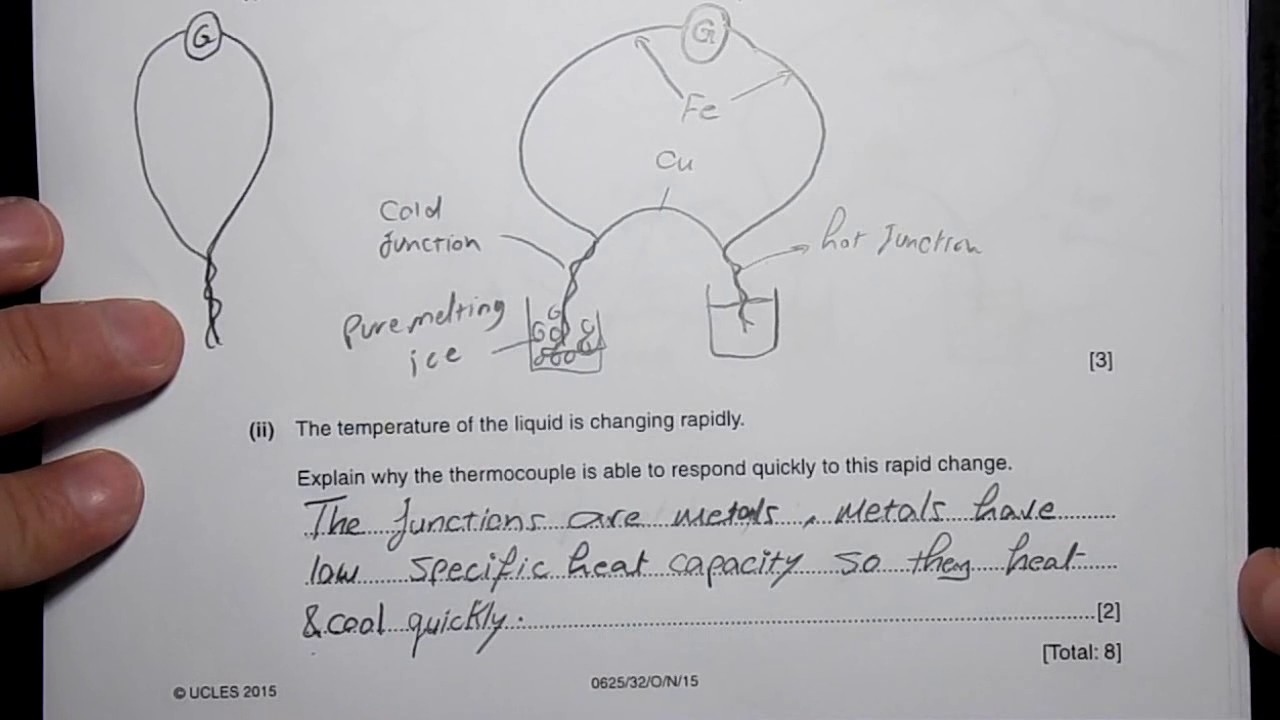 G
G
Fe
Cu
Cold
Junction
hot Junction
Pure melting
ice
[3]
(ii) The temperature of the liquid is changing rapidly.
Explain why the thermocouple is able to respond quickly to this rapid change.
The Junctions are metals, Metals have
low specific heat capacity so they heat
& cool quickly. [2]
[Total: 8]
© UCLES 2015
0625/32/O/N/15